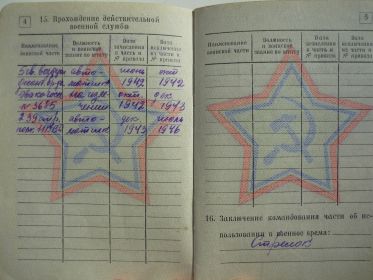 4
15. Прохождение действительной
военной службы
Наименование воинской части
Должность и воинское звание по штату
Дата зачисления в часть и № приказа
Дата исключения из части и № приказа
авто- июнь окт
матчик 1942 1942
окт. дек.
№ 3675 1942 1943
239 стр. авто- дек. июль
полк матчик 1943 1946
5
Наименование воинской части
Должность и воинское звание по штату
Дата зачисления в часть и № приказа
Дата исключения из части и № приказа
16. Заключение командования части об ис-
пользовании в военное время:
Стрелок